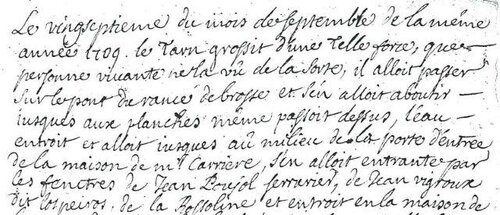 Le vingseptieme du mois de septemble de la même
année 1709. le Tarn grossit d'une Telle force, que
personne vivante ne la vû de la sorte, il alloit passer
sur le pont du rance de brosse et s'en alloit aboutir
iusques aux planches même passoit dessus, l'eau
entroit et alloit iusques au milieu de la porte d'entrée
de la maison de mr Carriere, s'en alloit entrante par
les fenetres de Jean Poujol serrurier, de Jean vigroux
dit los peiros, de la Rossoline et entroit en la maison de